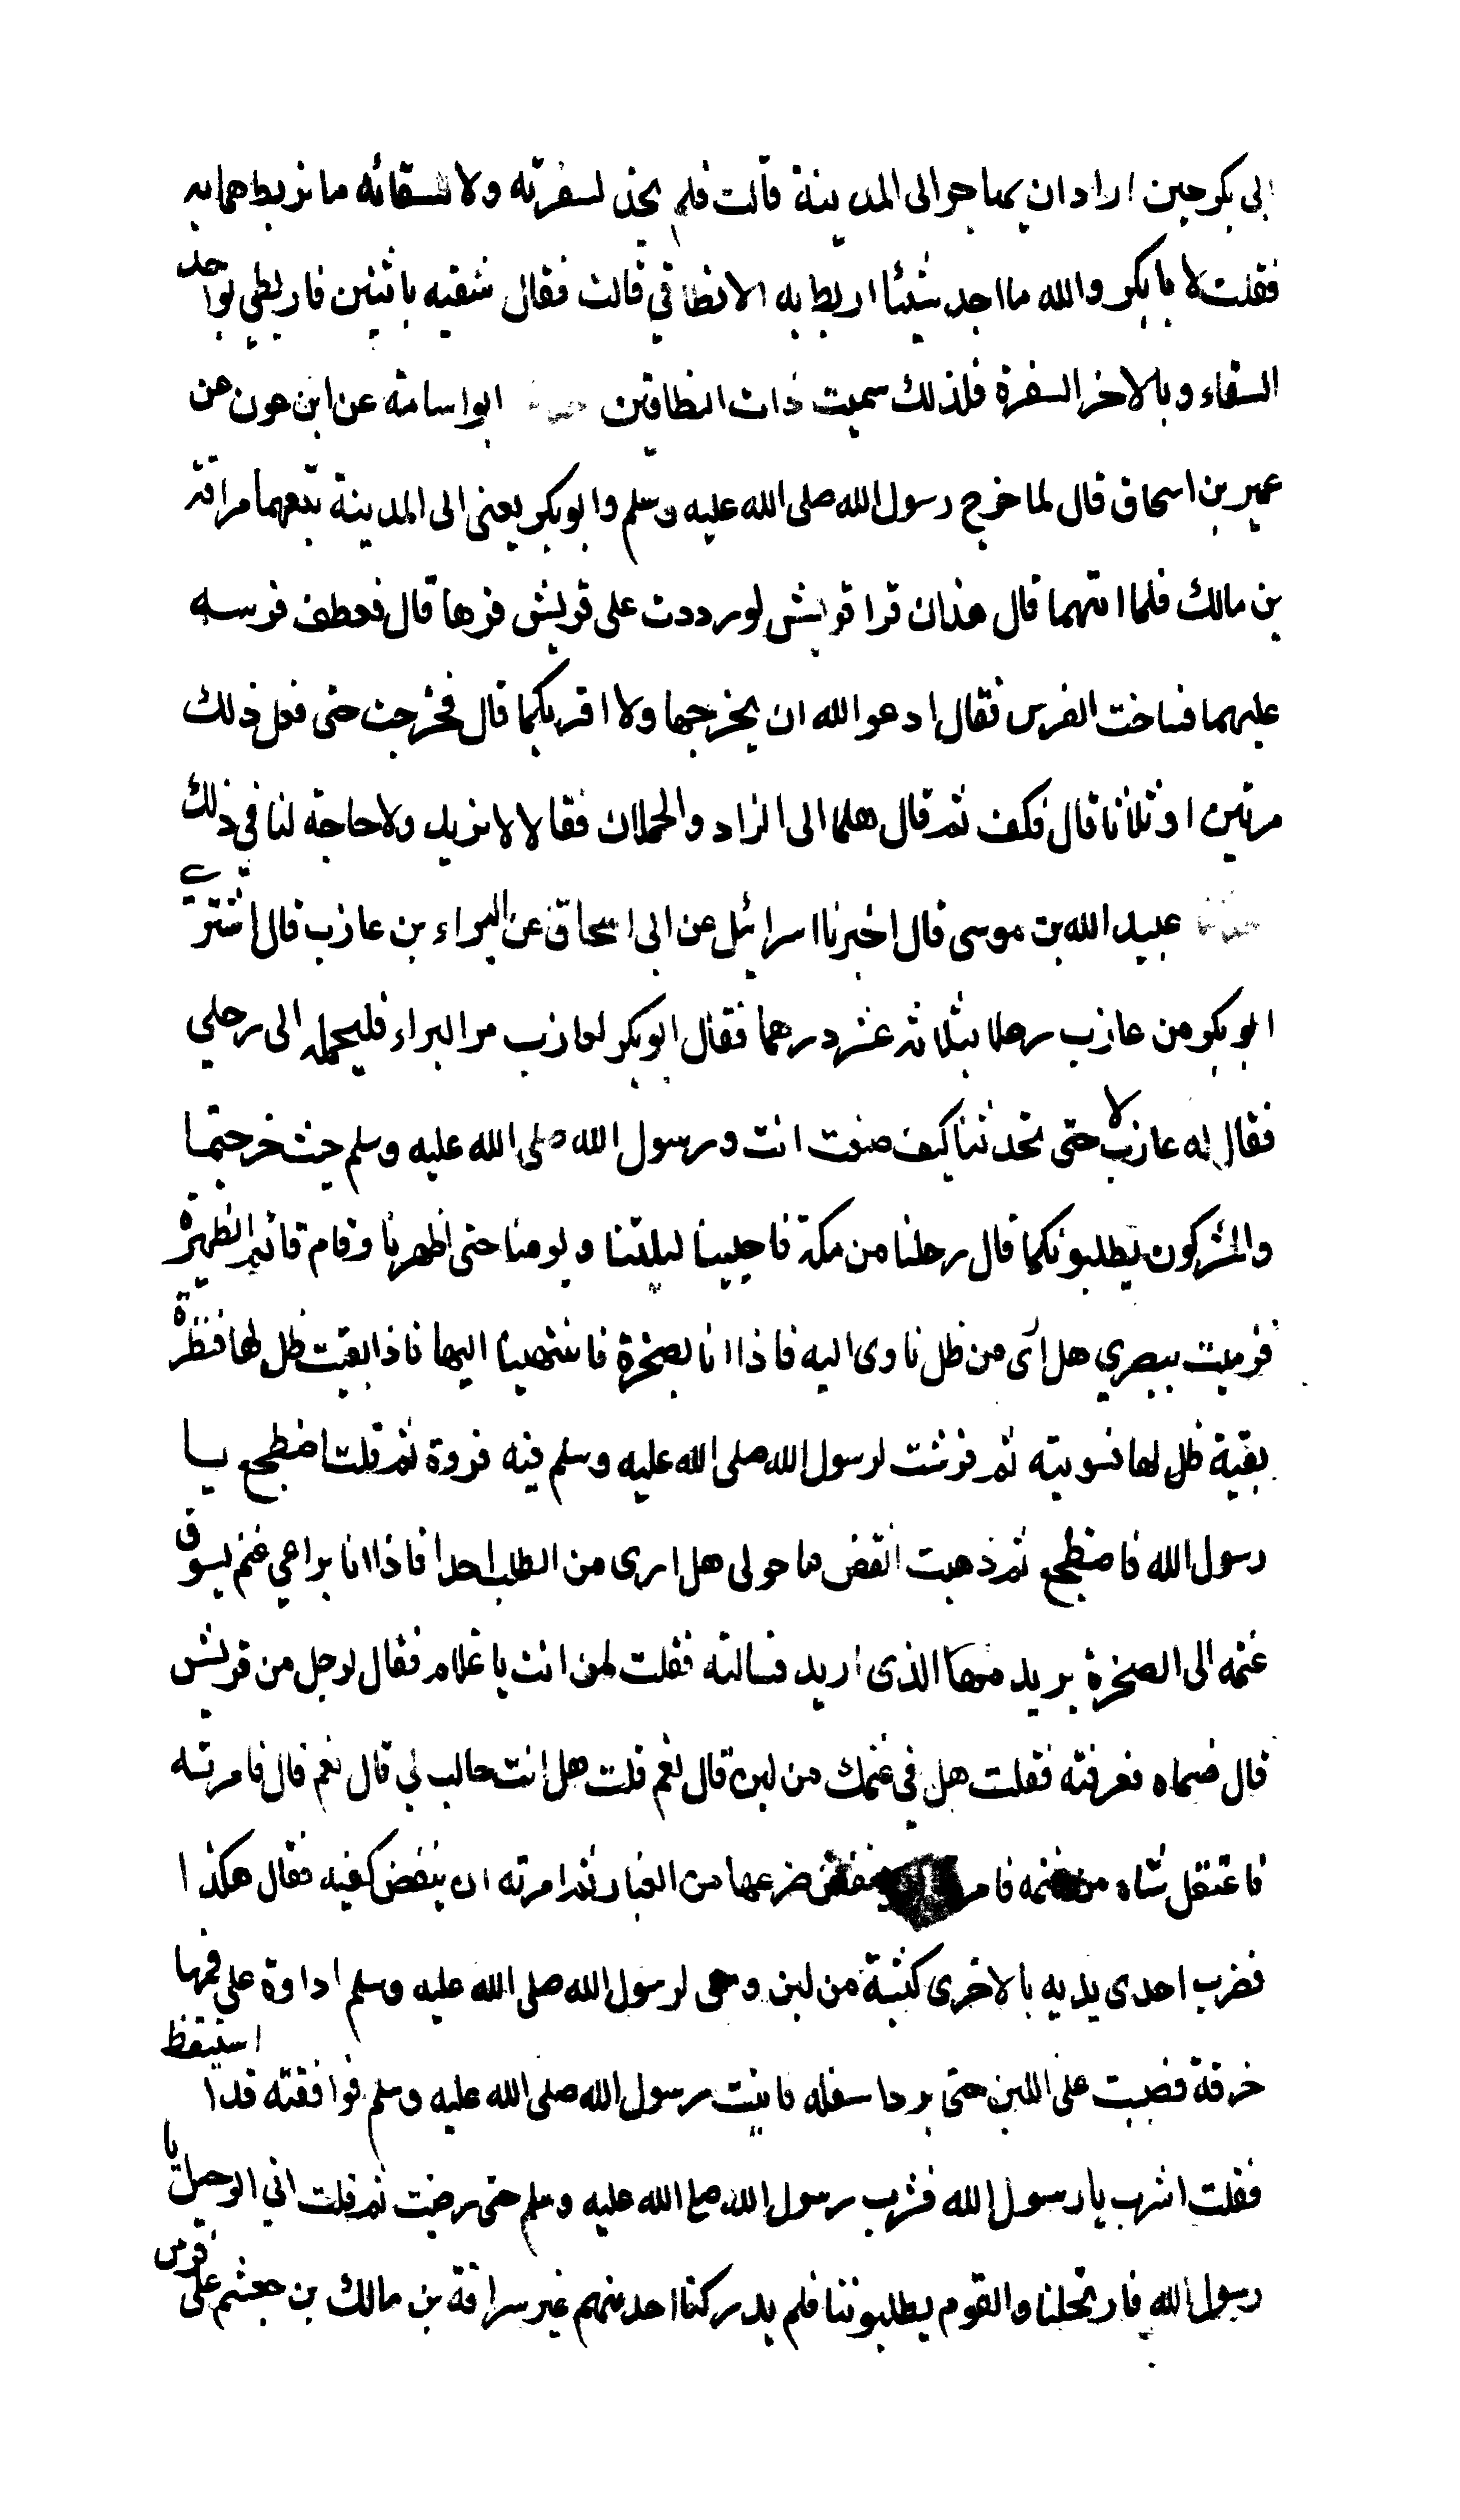 ابى بكر حين اراد ان يهاجر الى المدينة قالت فلم يجد لسفرته ولا لسقائه ما نربطهما به
فقلت لابى بكر والله ما اجد شيئا اربط به الا نطاقي قالت فقال شقيه باثنين فاربطي بواحد
السقاء وبالاخر السفرة فلذلك سميت ذات النطاقين حدثنا ابو اسامة عن ابن عون عن
عمير بن اسحاق قال لما خرج رسول الله صلى الله عليه وسلم وابو بكر يعنى الى المدينة تبعهما سراقة
بن مالك فلما اتاهما قال هذان فرا قريش لو رددت على قريش فرها قال فعطف فرسه
عليهما فساخت الفرس فقال ادعوا الله ان يخرجها ولا اقربكما قال فخرجت حتى فعل ذلك
مرتين او ثلاثا قال فكف ثم قال هلما الى الزاد والحملان فقالا لا نريد ولا حاجة لنا في ذلك
حدثنا عبيد الله بن موسى قال اخبرنا اسرائيل عن ابى اسحاق عن البراء بن عازب قال اشترى
ابو بكر من عازب رحلا بثلاثة عشر درهما فقال ابو بكر لعازب مر البراء فليحمله الى رحلي
فقال له عازب لا حتى تحدثنا كيف صنعت انت ورسول الله صلى الله عليه وسلم حيث خرجتما
والمشركون يطلبونكما قال رحلنا من مكة فاحيينا ليلتنا ويومنا حتى اظهرنا وقام قائم الظهيرة
فرميت ببصري هل أى من ظل ناوى اليه فاذا انا بصخرة فانتهينا اليها فاذا بقيت ظل لها فنظرت
بقية ظل لها فسويته ثم فرشت لرسول الله صلى الله عليه وسلم فيه فروة ثم قلت اضطجع يا
رسول الله فاضطجع ثم ذهبت انقض ما حولى هل ارى من الطلب احدا فاذا انا براعي غنم يسوق
غنمه الى الصخرة يريد منها الذى اريد فسالته فقلت لمن انت يا غلام فقال لرجل من قريش
قال فسماه فعرفته فقلت هل في غنمك من لبن قال نعم قلت هل انت حالب لي قال نعم قال فامرته
فاعتقل شاه من غنمه فامر ينفض ضرعها من الغبار ثم امرته ان ينفض كفيه فقال هكذا
فضرب احدى يديه بالاخرى كثبة من لبن ومعى لرسول الله صلى الله عليه وسلم اداوة على فمها
خرقة فصببت على اللبن حتى برد اسفله فاتيت رسول الله صلى الله عليه وسلم فوافقته قد استيقظ
فقلت اشرب يا رسول الله فشرب رسول الله صلى الله عليه وسلم حتى رضيت ثم قلت انى الرحيل يا
رسول الله فارتحلنا والقوم يطلبوننا فلم يدركنا احد منهم غير سراقة بن مالك بن جعشم على فرس